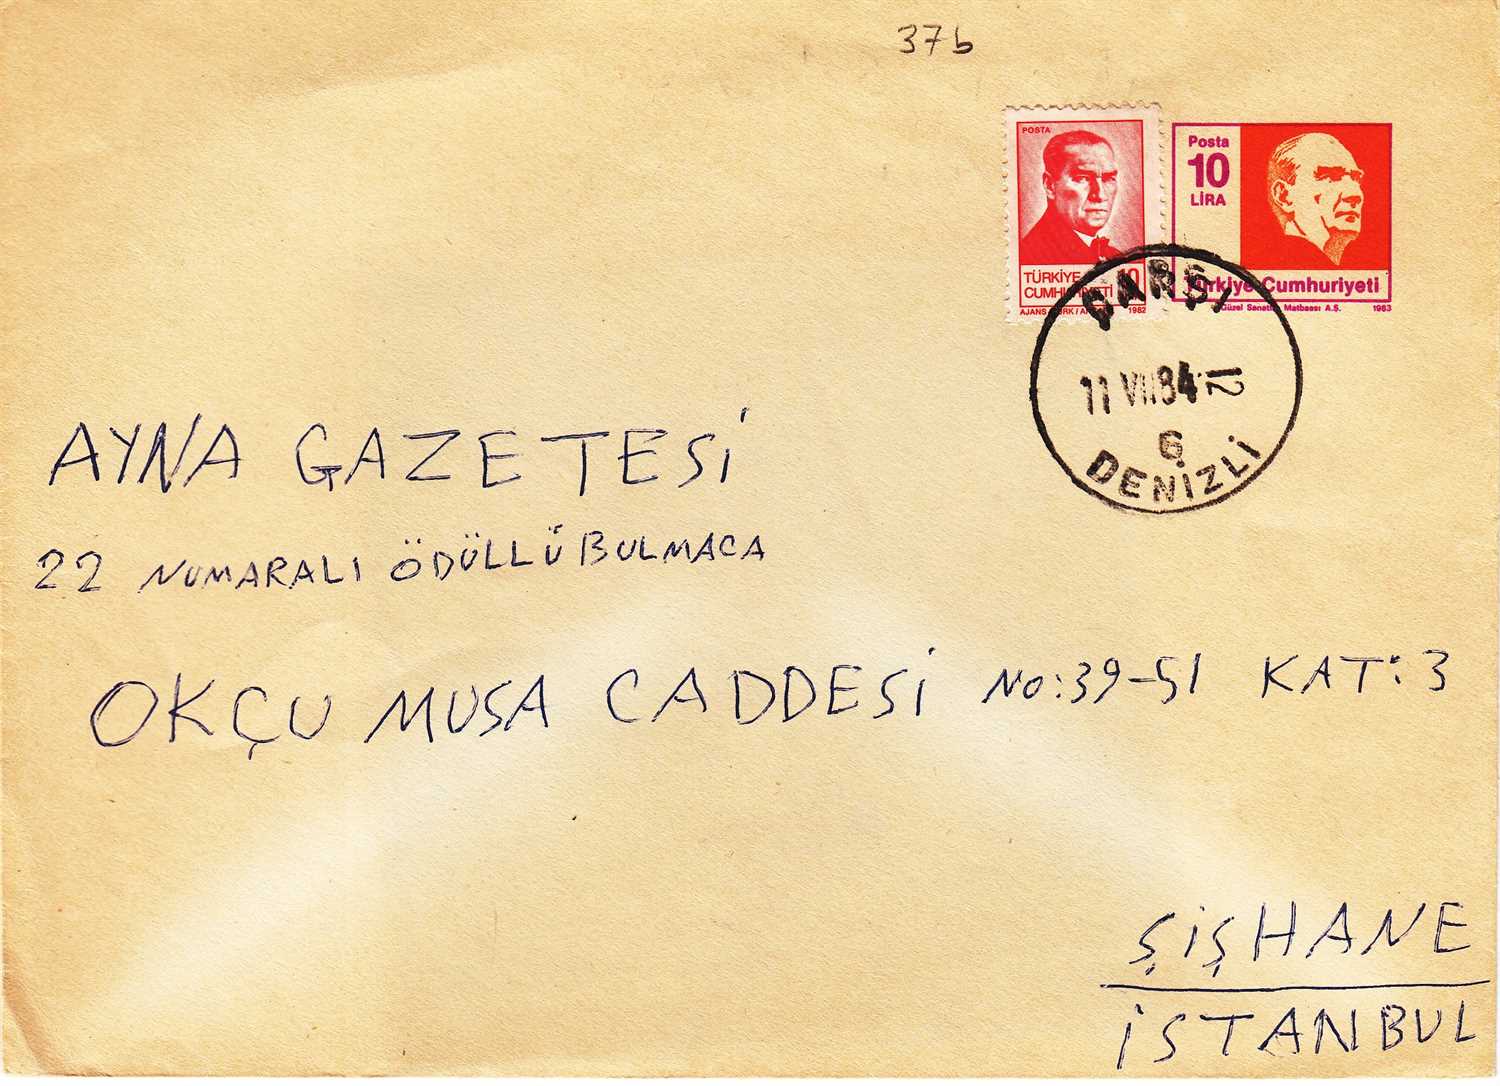 37b
POSTA
TÜRKİYE 10
CUMHURİYETİ
1982
Posta
10
LİRA
Türkiye Cumhuriyeti
Güzel Sanatlar Matbaası A.Ş. 1983
ÇARŞI
11 VII 84 12
6
DENİZLİ
AYNA GAZETESİ
22 NUMARALI ÖDÜLLÜ BULMACA
OKÇU MUSA CADDESİ No:39-51 KAT:3
ŞİŞHANE
İSTANBUL